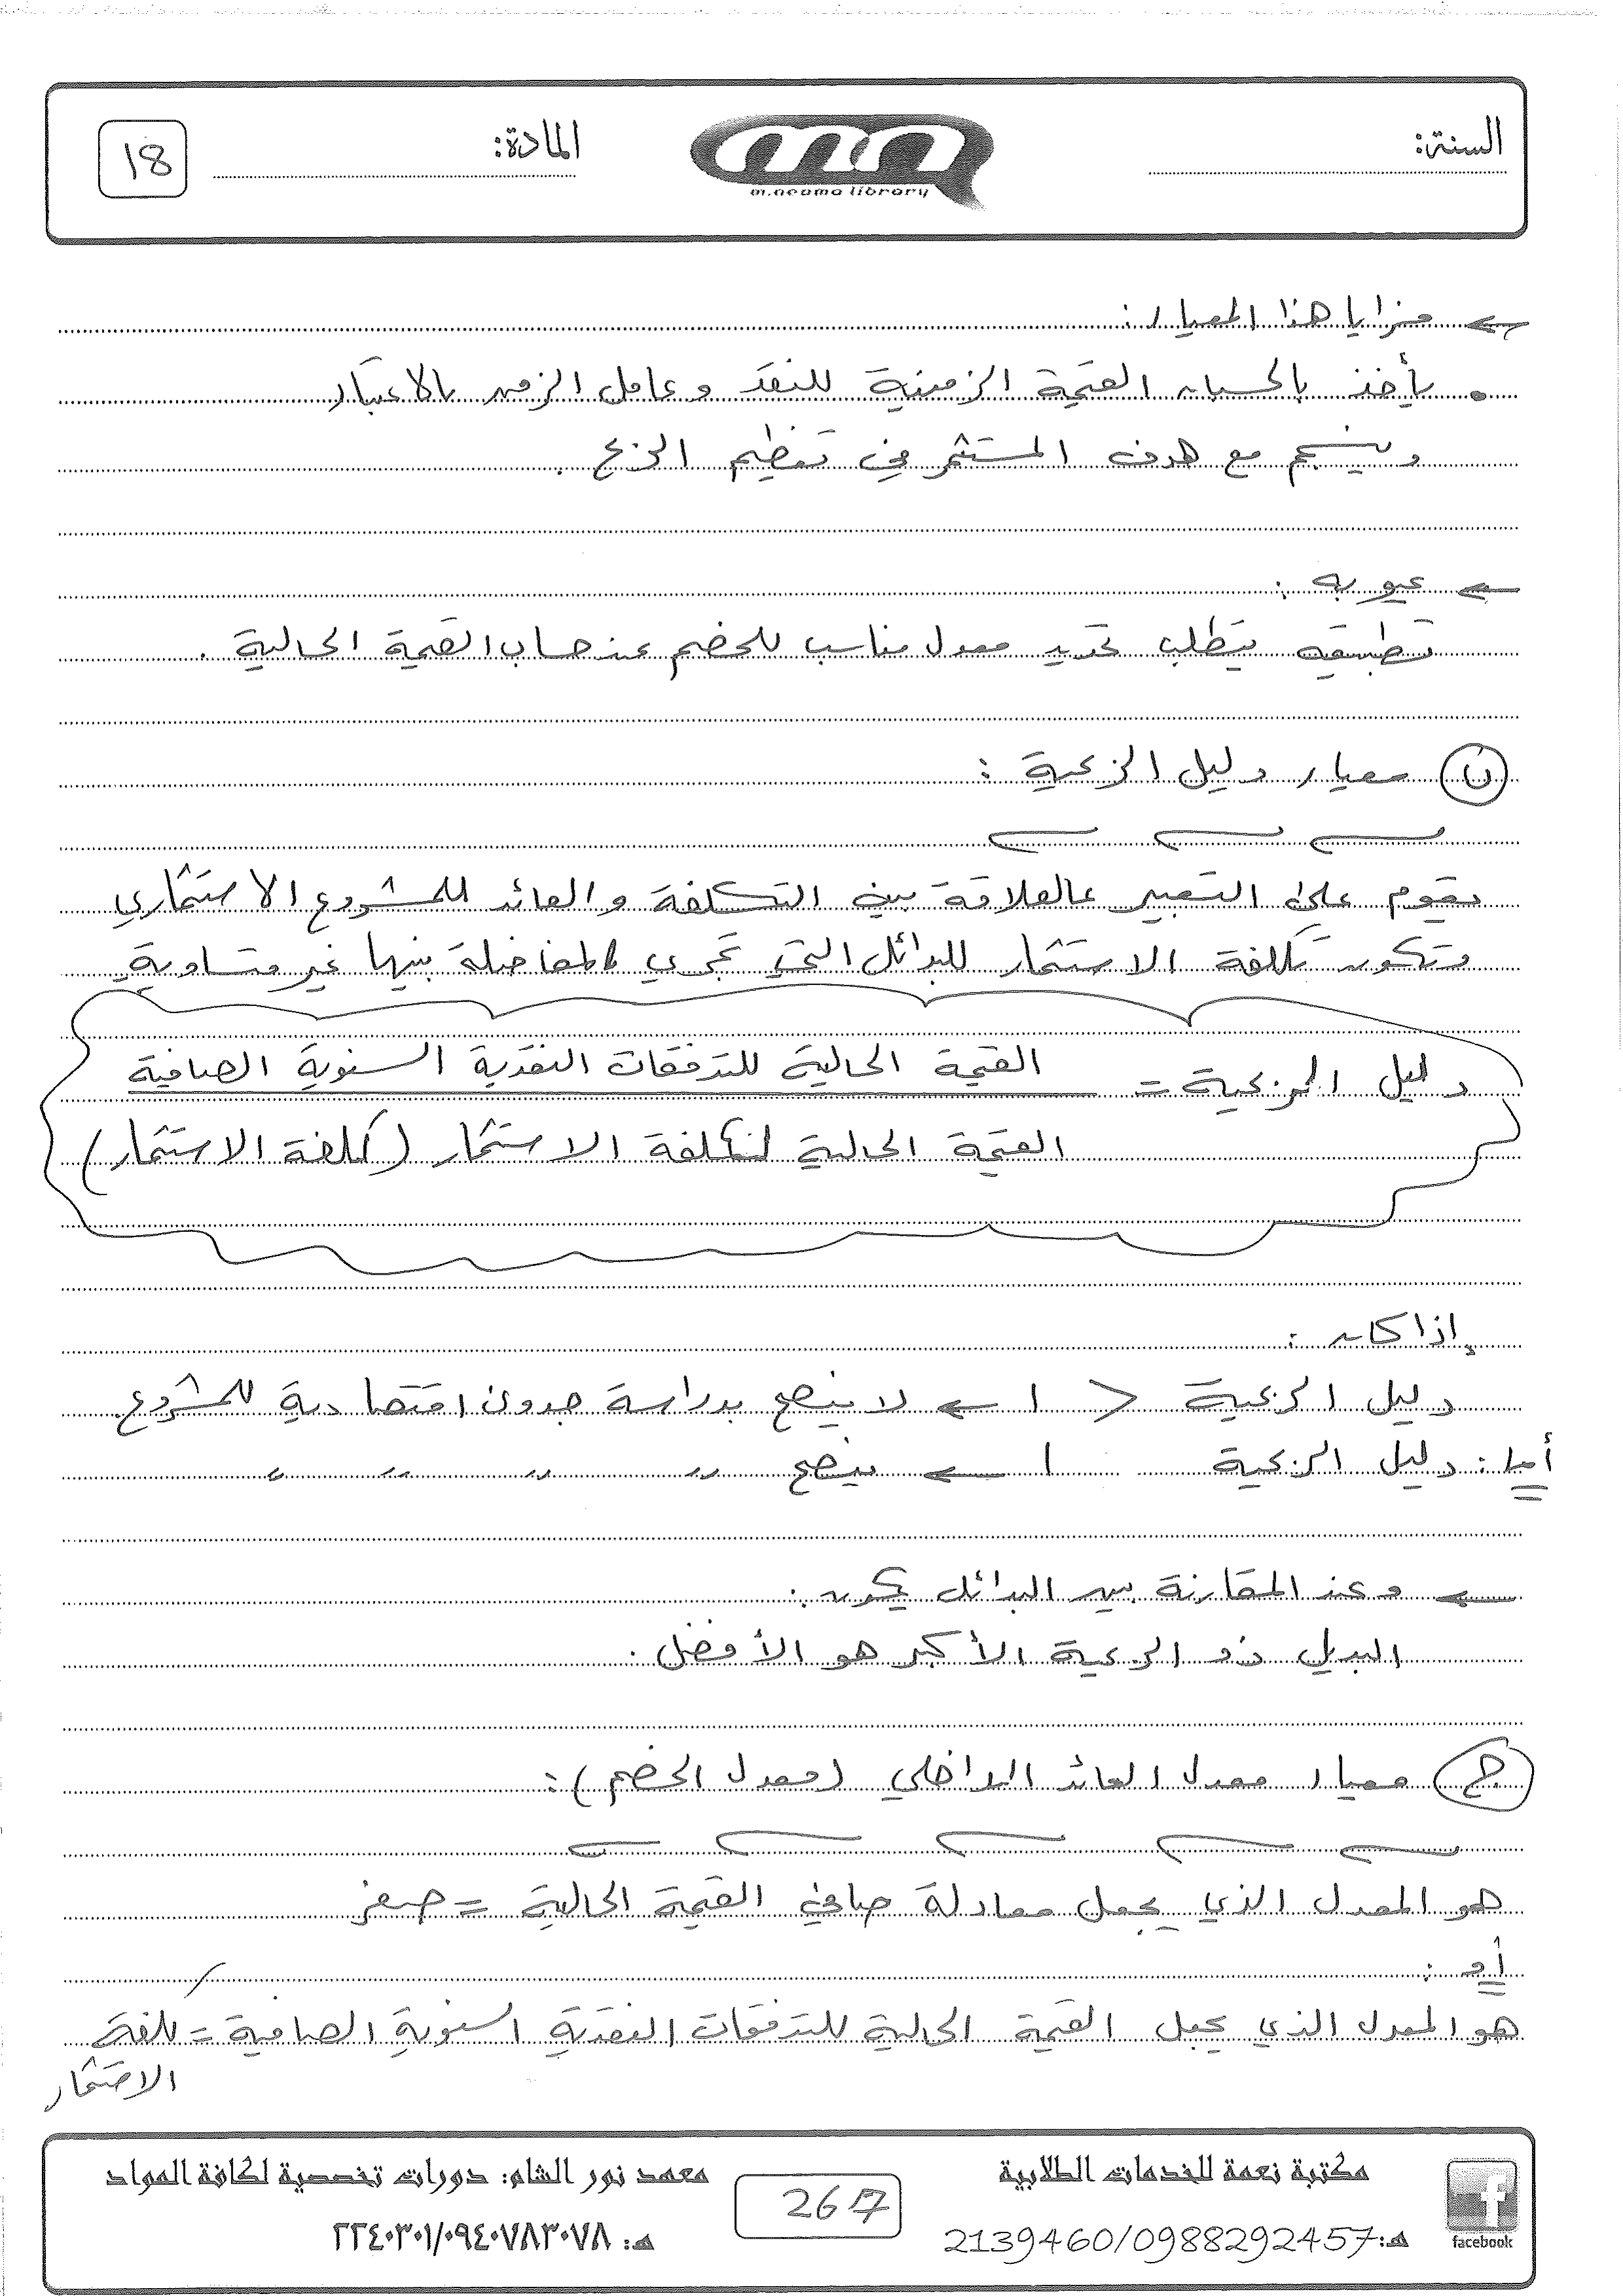 السنة:
m.neama library
المادة:
18
← مزايا هذا المعيار:
• يأخذ بالحسبان القيمة الزمنية للنقد وعامل الزمن بالاعتبار
وينسجم مع هدف المستثمر في تعظيم الربح.
← عيوبه:
تطبيقه يتطلب تحديد معدل مناسب للخصم عند حساب القيمة الحالية.
ب معيار دليل الربحية:
يقوم على التعبير عالعلاقة بين التكلفة والعائد للمشروع الاستثماري
وتكون تكلفة الاستثمار للبدائل التي تجري المفاضلة بينها غير متساوية
دليل الربحية = القيمة الحالية للتدفقات النقدية السنوية الصافية
القيمة الحالية لتكلفة الاستثمار (كلفة الاستثمار)
إذا كان:
دليل الربحية < 1 ← لا ينصح بدراسة جدوى اقتصادية للمشروع
أما: دليل الربحية 1 ← ينصح " " " "
← وعند المقارنة بين البدائل يكون:
البديل ذو الربحية الأكبر هو الأفضل.
ج معيار معدل العائد الداخلي (معدل الخصم):
هو المعدل الذي يجعل معادلة صافي القيمة الحالية = صفر
أو:
هو المعدل الذي يجعل القيمة الحالية للتدفقات النقدية السنوية الصافية = كلفة
الاستثمار
مكتبة نعمة للخدمات الطلابية
هـ: 2139460/0988292457
facebook
267
معهد نور الشام: دورات تخصصية لكافة المواد
هـ: ٢٢٤٠٣٠١/٠٩٤٠٧٨٣٠٧٨